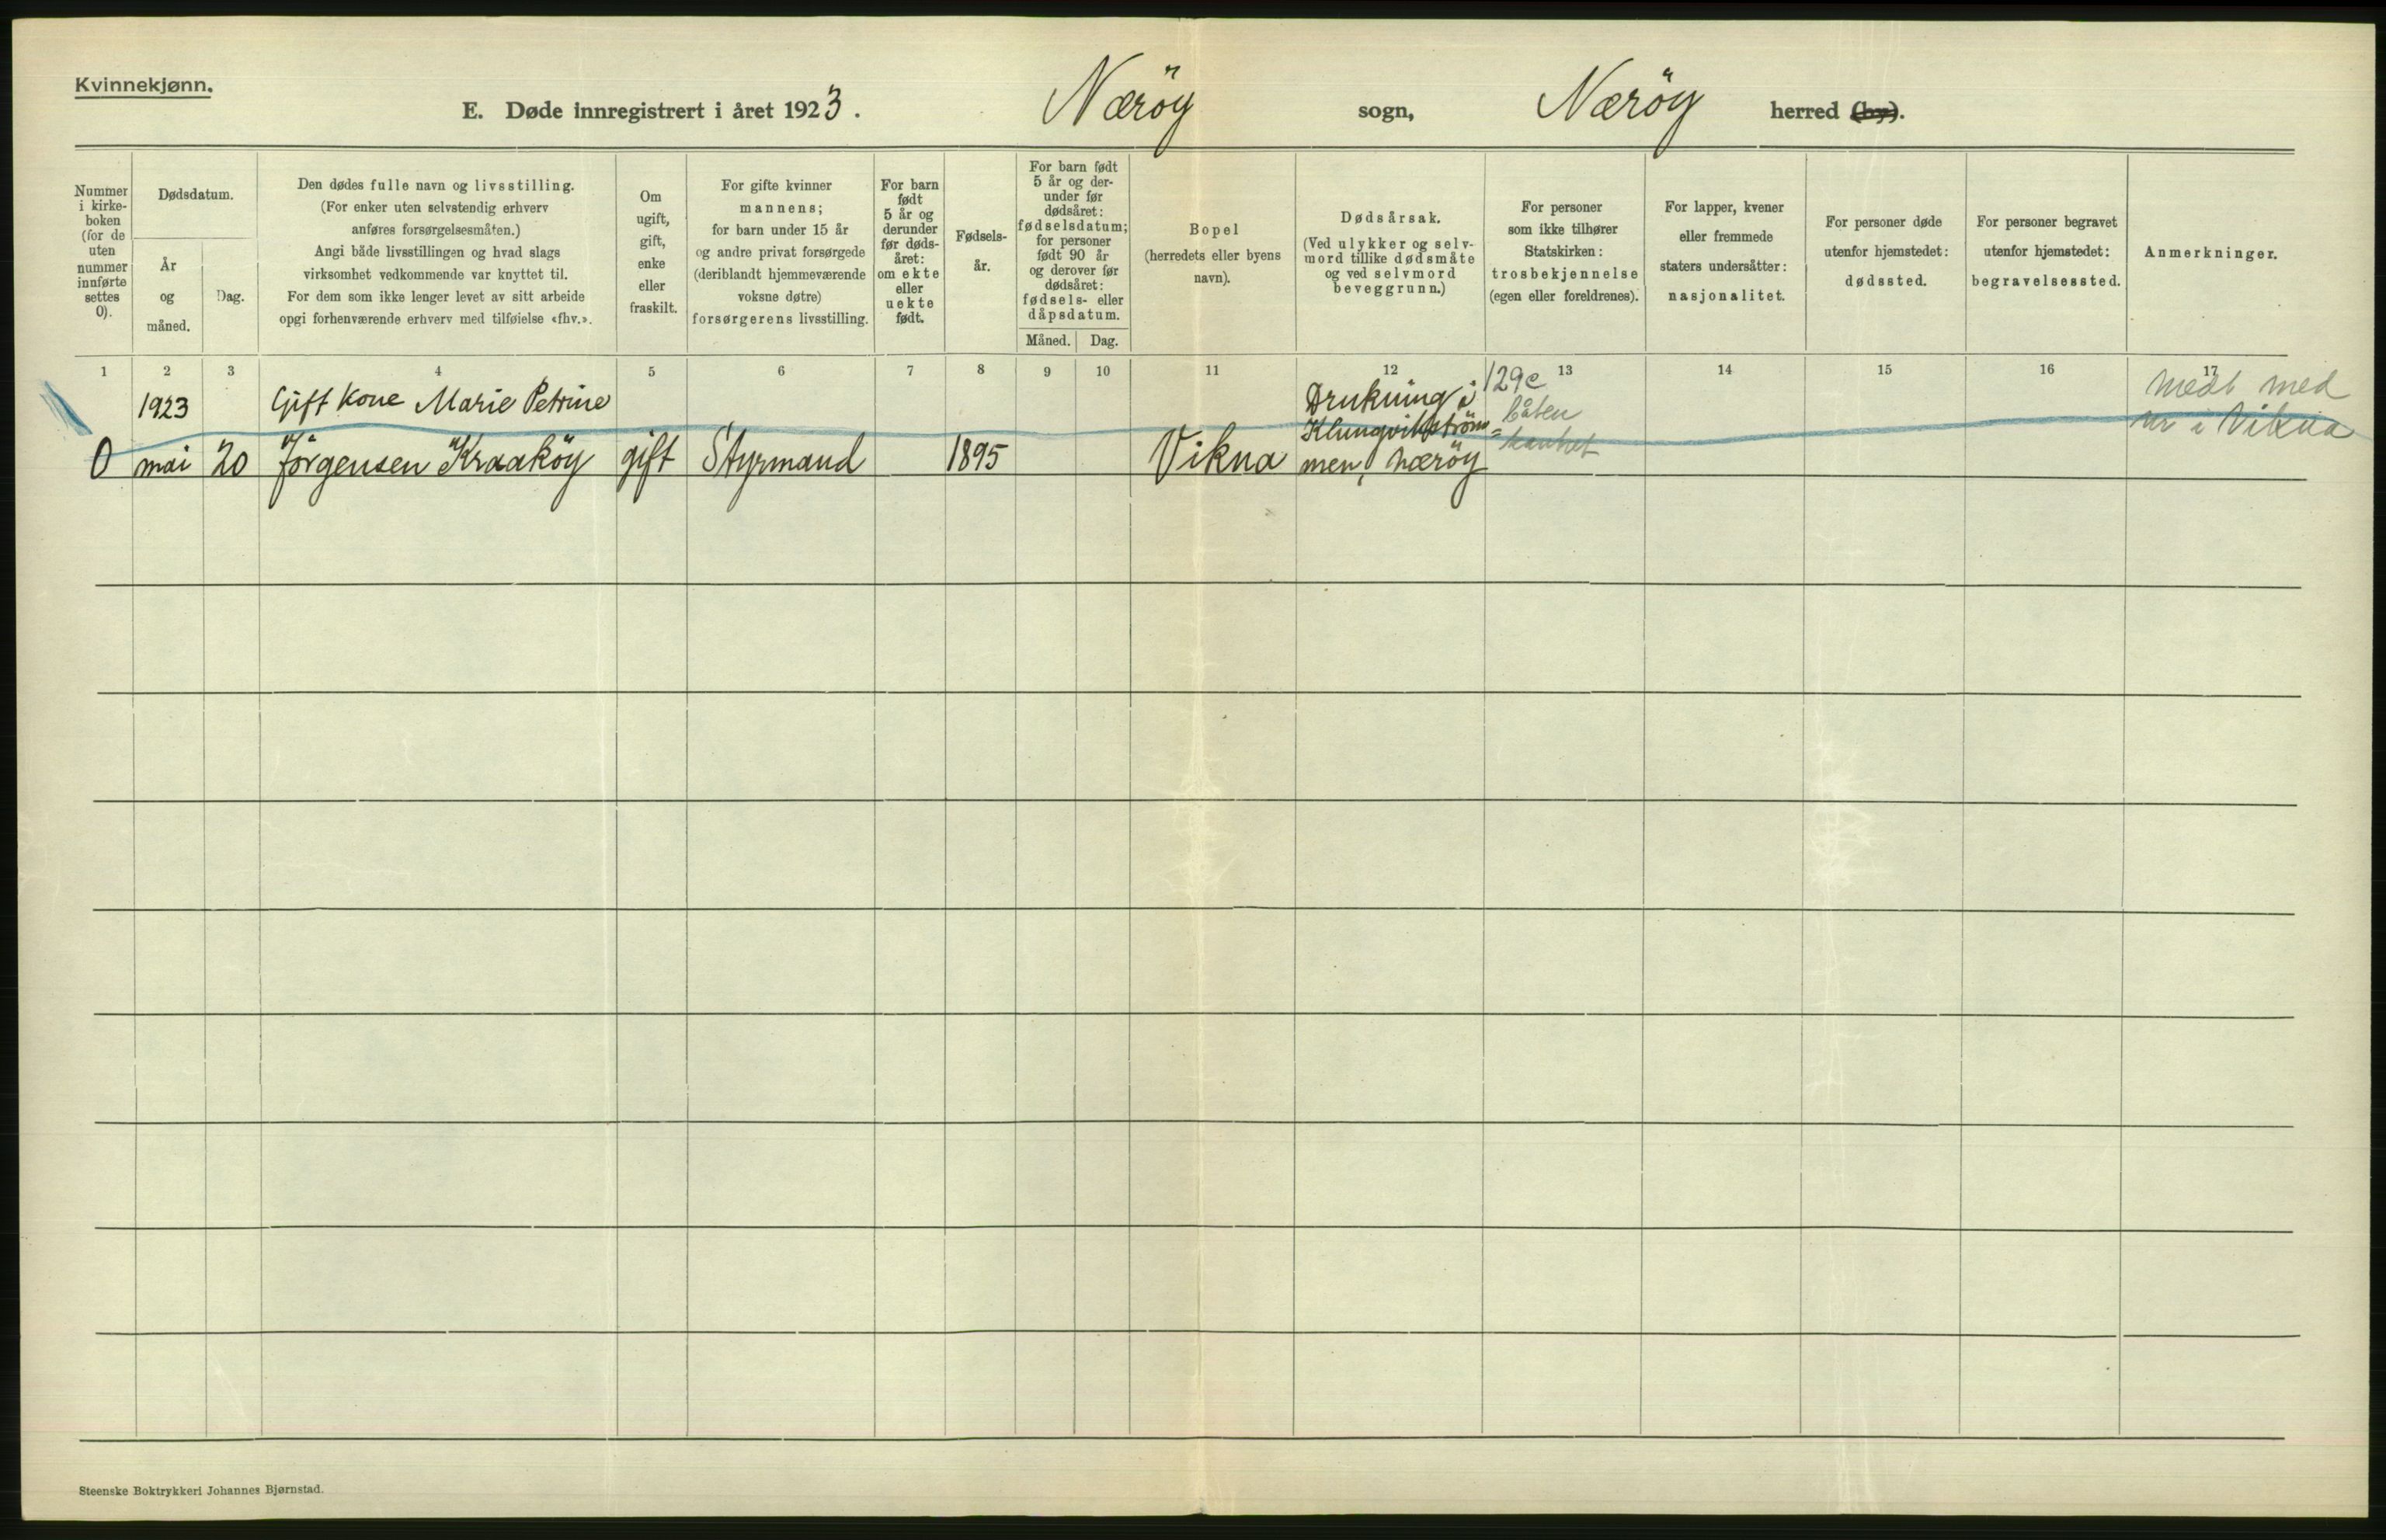 Kvinnekjønn.
E. Døde innregistrert i året 1923. Næröy sogn, Næröy herred (by).
Nummer
i kirke-
boken
(for de
uten
nummer
innførte
settes
0).
Dødsdatum.
År
og
måned.
Dag.
Den dødes fulle navn og livsstilling.
(For enker uten selvstendig erhverv
anføres forsørgelsesmåten.)
Angi både livsstillingen og hvad slags
virksomhet vedkommende var knyttet til.
For dem som ikke lenger levet av sitt arbeide
opgi forhenværende erhverv med tilføielse «fhv.».
Om
ugift,
gift,
enke
eller
fraskilt.
For gifte kvinner
mannens;
for barn under 15 år
og andre privat forsørgede
(deriblandt hjemmeværende
voksne døtre)
forsørgerens livsstilling.
For barn
født
5 år og
derunder
før døds-
året:
om ekte
eller
uekte
født.
Fødsels-
år.
For barn født
5 år og der-
under før
dødsåret:
fødselsdatum;
for personer
født 90 år
og derover før
dødsåret:
fødsels- eller
dåpsdatum.
Måned. Dag.
Bopel
(herredets eller byens
navn).
Dødsårsak.
(Ved ulykker og selv-
mord tillike dødsmåte
og ved selvmord
beveggrunn.)
For personer
som ikke tilhører
Statskirken:
trosbekjennelse
(egen eller foreldrenes).
For lapper, kvener
eller fremmede
staters undersåtter:
nasjonalitet.
For personer døde
utenfor hjemstedet:
dødssted.
For personer begravet
utenfor hjemstedet:
begravelsessted.
Anmerkninger.
1 2 3 4 5 6 7 8 9 10 11 12 13 14 15 16 17
1923 Gift kone Marie Petrine Drukning i 129e medt med
Klungvikström= båten nr i Vikna
0 mai 20 Jörgensen Kraaköy gift Styrmand 1895 Vikna men, Næröy kantret
Steenske Boktrykkeri Johannes Bjørnstad.